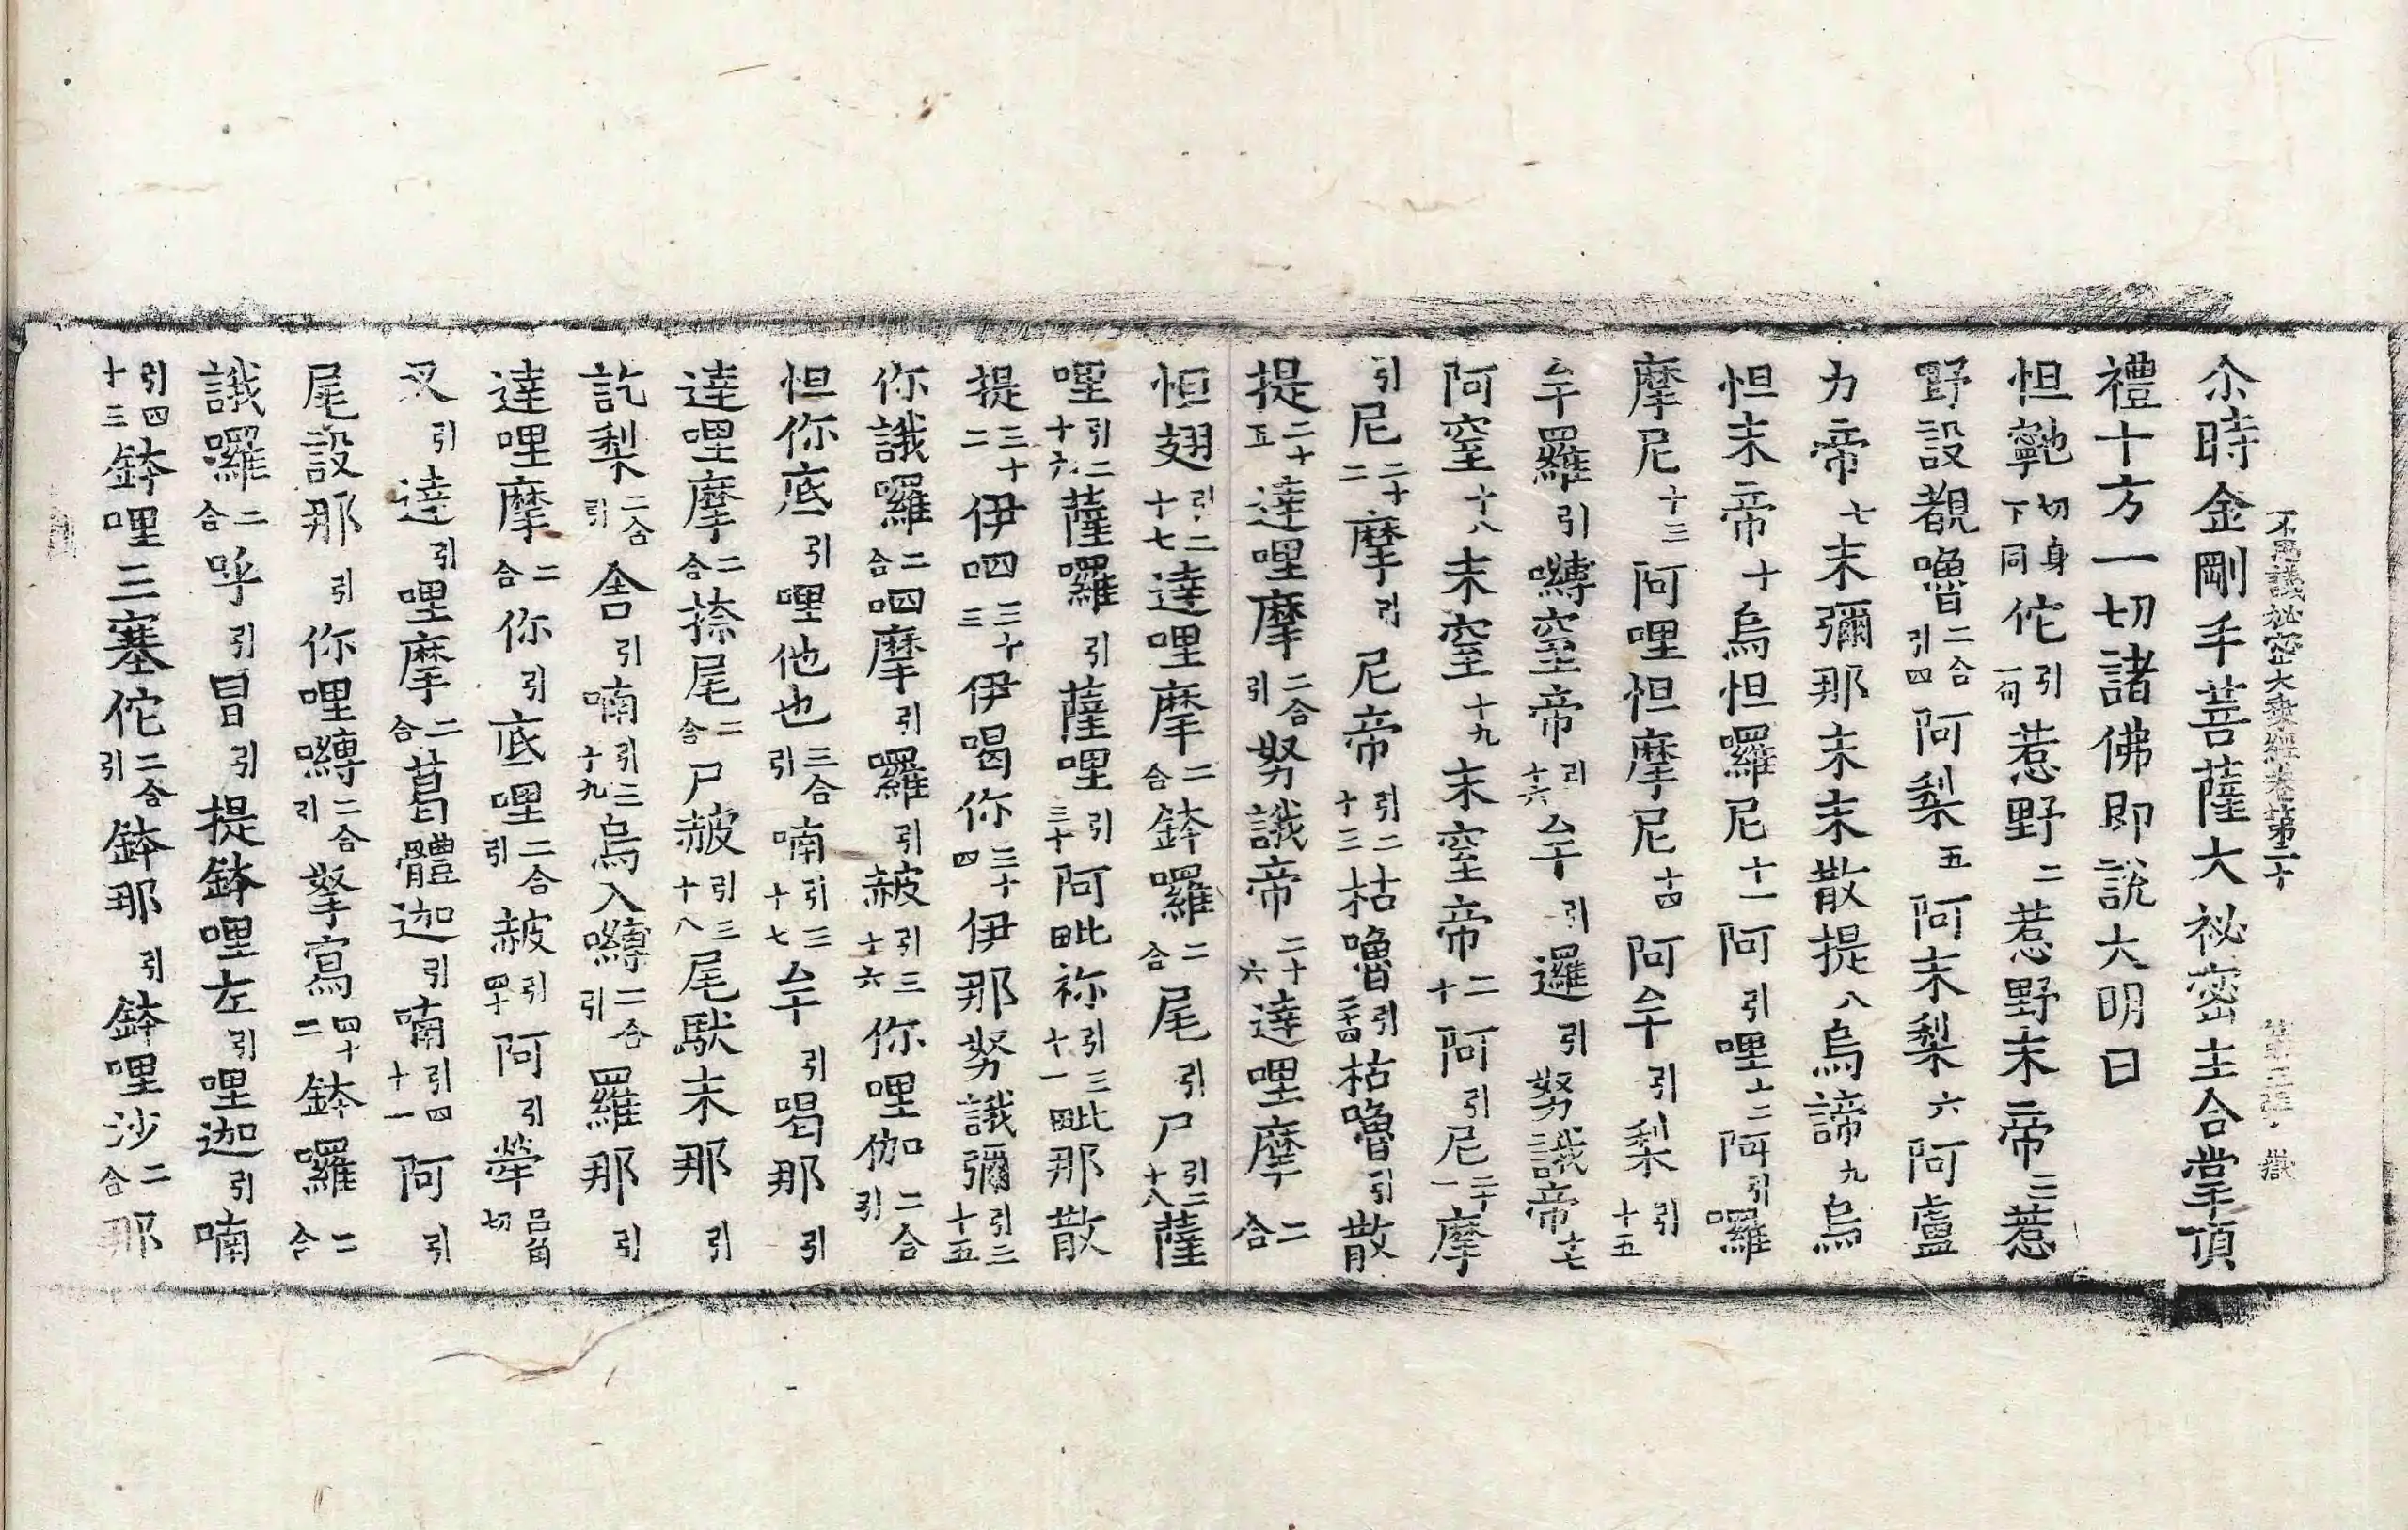 不思議祕密大乘經卷第二十 第三張 嶽
尒時金剛手菩薩大祕密主合掌頂
禮十方一切諸佛即說大明曰
怛𩕳切身下同佗引一句惹野二惹野末帝三惹
野設覩嚕二合引四阿梨五阿末梨六阿盧
力帝七末彌那末末散提八烏諦九烏
怛末帝十烏怛囉尼十一阿引哩十二阿引囉
摩尼十三阿哩怛摩尼十四阿牟引梨引十五
牟羅引嚩窒帝引十六牟引邏引努誐帝十七
阿窒十八末窒十九末窒帝二十阿引尼二十一摩
引尼二十二摩引尼帝引二十三枯嚕引二十四枯嚕引散
提二十五達哩摩二合引努誐帝二十六達哩摩二合
怛翅引二十七達哩摩二合鉢囉二合尾引尸引二十八薩
哩引二十六薩囉引薩哩引三十阿毗祢引三十一毗那散
提三十二伊呬三十三伊喝你三十四伊那努誐彌引三十五
你誐囉二合呬摩引囉引赧引三十六你哩伽二合引
怛你底引哩他也三合引喃引三十七牟引喝那引
達哩摩二合捺尾二合尸赧引三十八尾馱末那引
訖梨二合引舍引喃引三十九烏入嚩二合引羅那引
達哩摩二合你引底哩二合引赧引四十阿引犖呂角切
叉引達引哩摩二合葛體迦引喃引四十一阿引
尾設那引你哩嚩二合引拏寫四十二鉢囉二合
誐囉二合呼引冒引提鉢哩左引哩迦引喃
引四十三鉢哩三塞佗二合引鉢那引鉢哩沙二合那